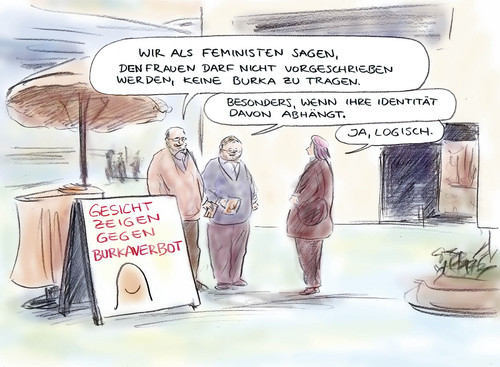 WIR ALS FEMINISTEN SAGEN,
DEN FRAUEN DARF NICHT VORGESCHRIEBEN
WERDEN, KEINE BURKA ZU TRAGEN.
BESONDERS, WENN IHRE IDENTITÄT
DAVON ABHÄNGT.
JA, LOGISCH.
GESICHT
ZEIGEN
GEGEN
BURKAVERBOT